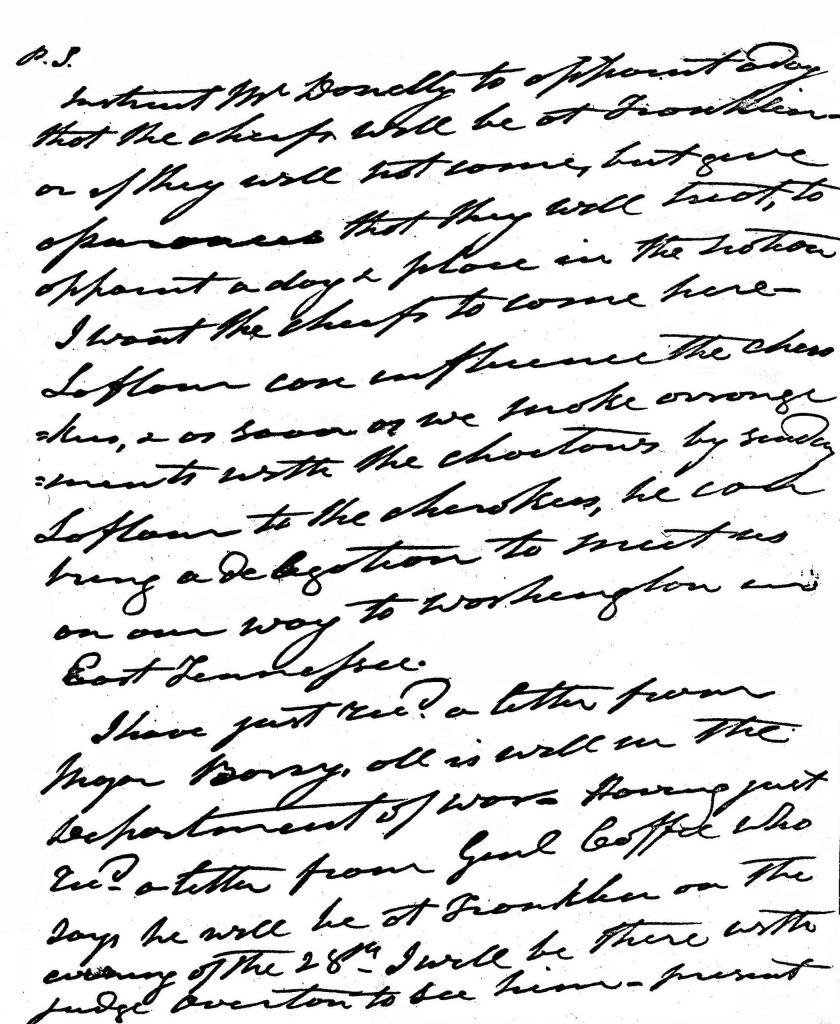 P.S.
Instruct Mr Donelly to appoint a day
that the cheifs will be at Franklin
or if they will not come, but give
assurances that they will treat, to
appoint a day & place in the nation
I want the cheifs to come here—
Laflour can influence the chero
=kees, & as soon as we make arrange
=ments with the choctaws by sending
Laflour to the cherokees, he can
bring a delegation to meet us
on our way to washington in
East Tennessee.
I have just recd. a letter from
Major Barry, all is well in the
Department of war— Having just
recd— a letter from Genl Coffee who
says he will be at Franklin on the
evening of the 28th— I will be there with
judge overton to see him— present